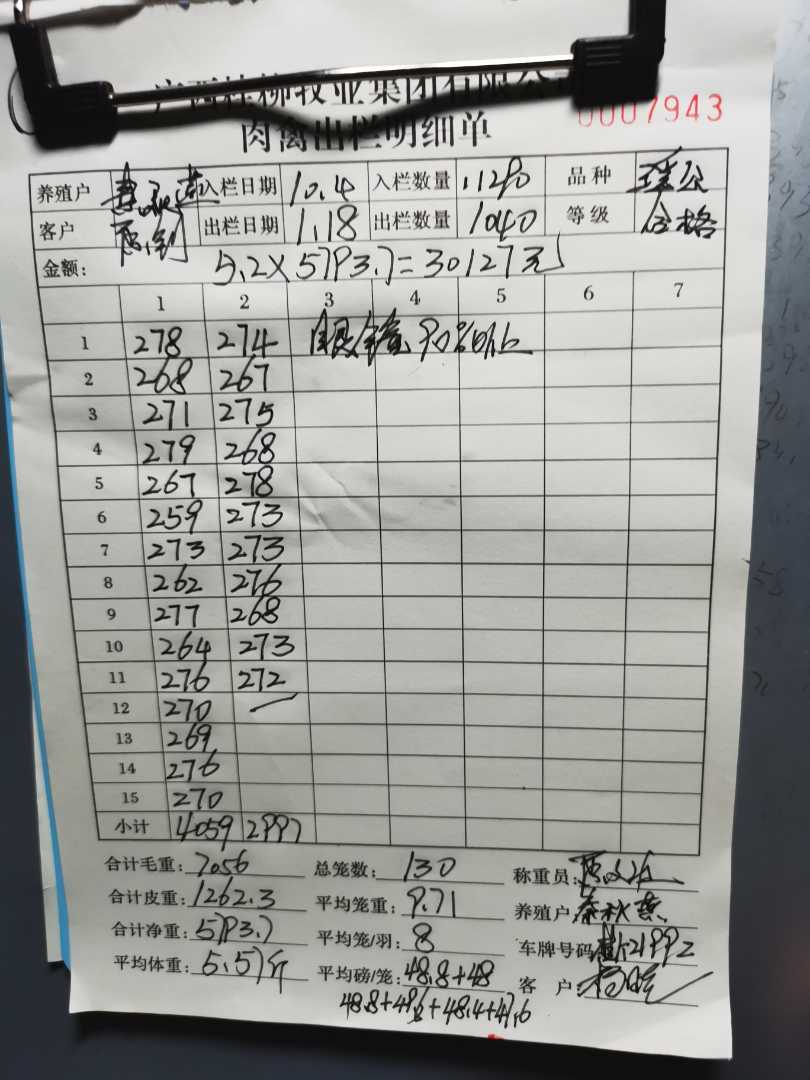 广西桂柳牧业集团有限公
0007943
肉禽出栏明细单
养殖户 入栏日期 10.4 入栏数量 1120 品种
客户 出栏日期 1.18 出栏数量 1040 等级 合格
金额: 5.2×5793.7=30127元
1 2 3 4 5 6 7
1 278 274
2 268 267
3 271 275
4 279 268
5 267 278
6 259 273
7 273 273
8 262 276
9 277 268
10 264 273
11 276 272
12 270 —
13 269
14 276
15 270
小计 4059 2997
合计毛重: 7056 总笼数: 130 称重员:
合计皮重: 1262.3 平均笼重: 9.71 养殖户 秦秋燕
合计净重: 5793.7 平均笼/羽: 8 车牌号码
平均体重: 5.57斤 平均磅/笼: 48.8+48 客户:
48.8+48.6+48.4+47.6